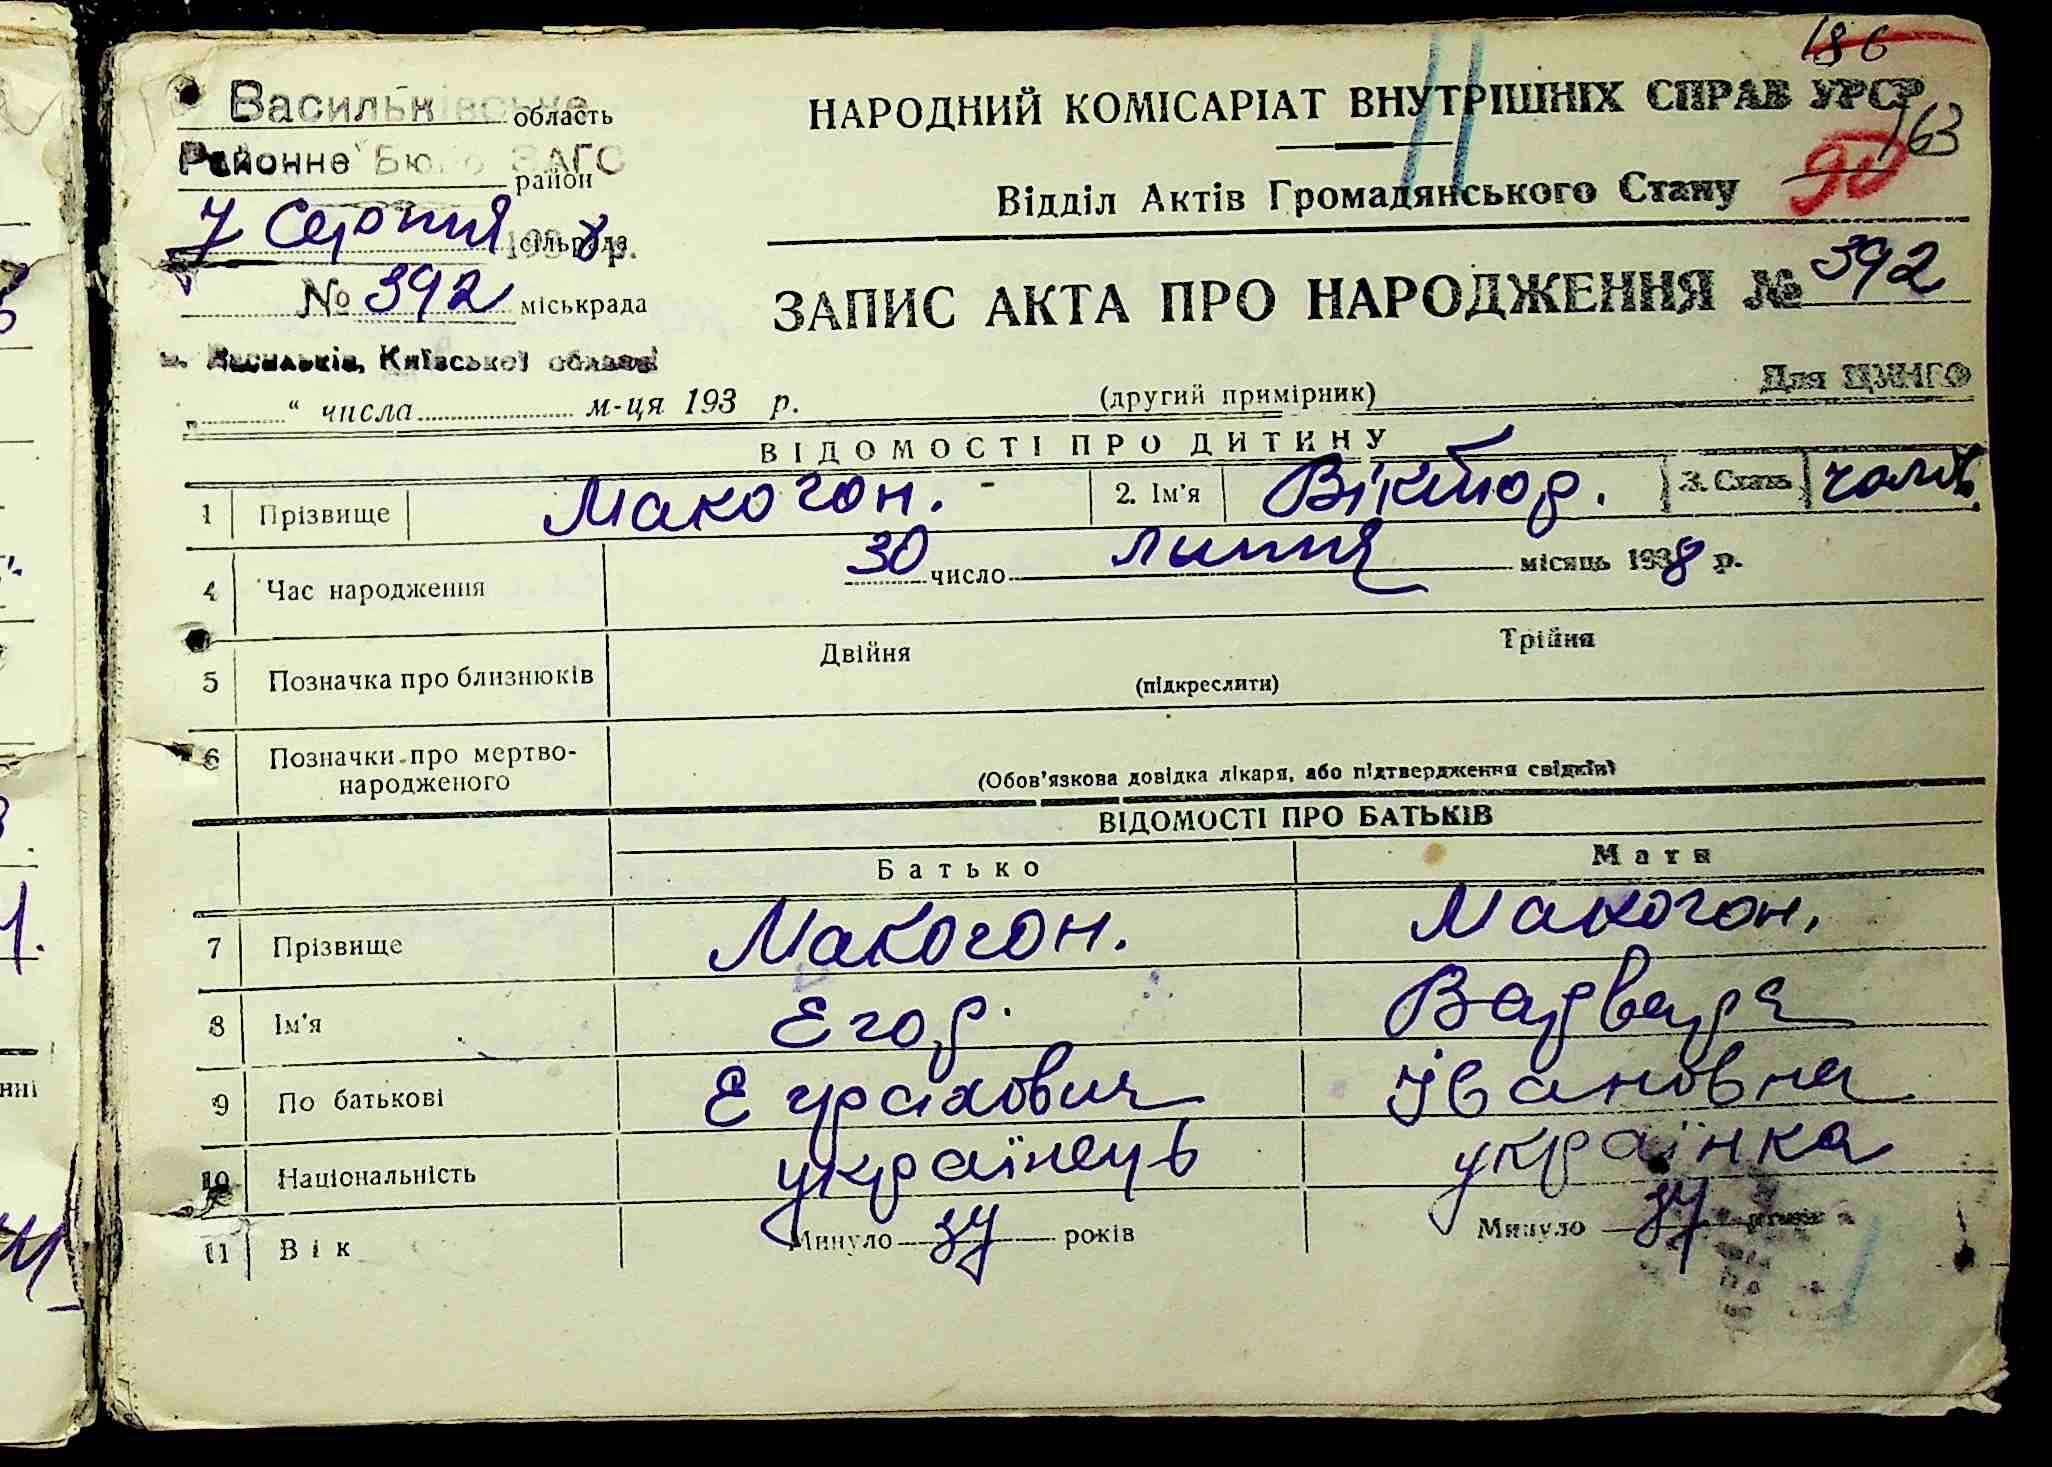 186
Васильківське область
НАРОДНИЙ КОМІСАРІАТ ВНУТРІШНІХ СПРАВ УРСР
163
Районне Бюро ЗАГС район
Відділ Актів Громадянського Стану
90
7 Серпня 1938 р. сільрада
№ 392 міськрада
ЗАПИС АКТА ПРО НАРОДЖЕННЯ № 392
м. Васильків, Київської області
„ “ числа м-ця 193 р.
(другий примірник)
Для ЦУНГО
ВІДОМОСТІ ПРО ДИТИНУ
1 Прізвище Макогон. 2. Ім'я Віктор. 3. Стать чолов.
4 Час народження 30 число липня місяць 1938 р.
5 Позначка про близнюків Двійня Трійня
(підкреслити)
6 Позначки про мертво-
народженого
(Обов'язкова довідка лікаря, або підтвердження свідків)
ВІДОМОСТІ ПРО БАТЬКІВ
Батько Мати
7 Прізвище Макогон. Макогон.
8 Ім'я Егор. Варвара
9 По батькові Івановна
10 Національність українець українка
11 Вік Минуло 34 років Минуло 34 років